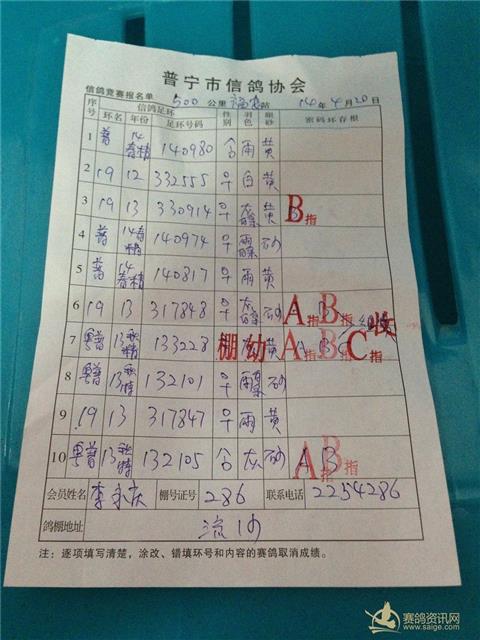 普宁市信鸽协会
信鸽竞赛报名单 500 公里 福安 站 14 年 4 月 20 日
序号 信鸽足环 性别 羽色 眼砂 密码环存根
环名 年份 足环号码
1 普 14 春精 140980 合 雨 黄
2 19 12 332555 早 白 黄
3 19 13 330914 早 灰 黄 B指
4 普 14春精 140974 早 雨 砂
5 普 14 春精 140817 早 雨 黄
6 19 13 317848 早 灰 砂 A指 B指 收
7 粤普 13秋特 133228 棚 幼 黄 A指 B指 C指
8 粤普 13秋特 132101 早 砂
9 19 13 317847 早 雨 黄
10 粤普 13秋特 132105 合 灰 砂 A指 B指
会员姓名 李永庆 棚号证号 286 联系电话 2254286
鸽棚地址 流沙
注：逐项填写清楚，涂改、错填环号和内容的赛鸽取消成绩。
赛鸽资讯网
www.saige.com